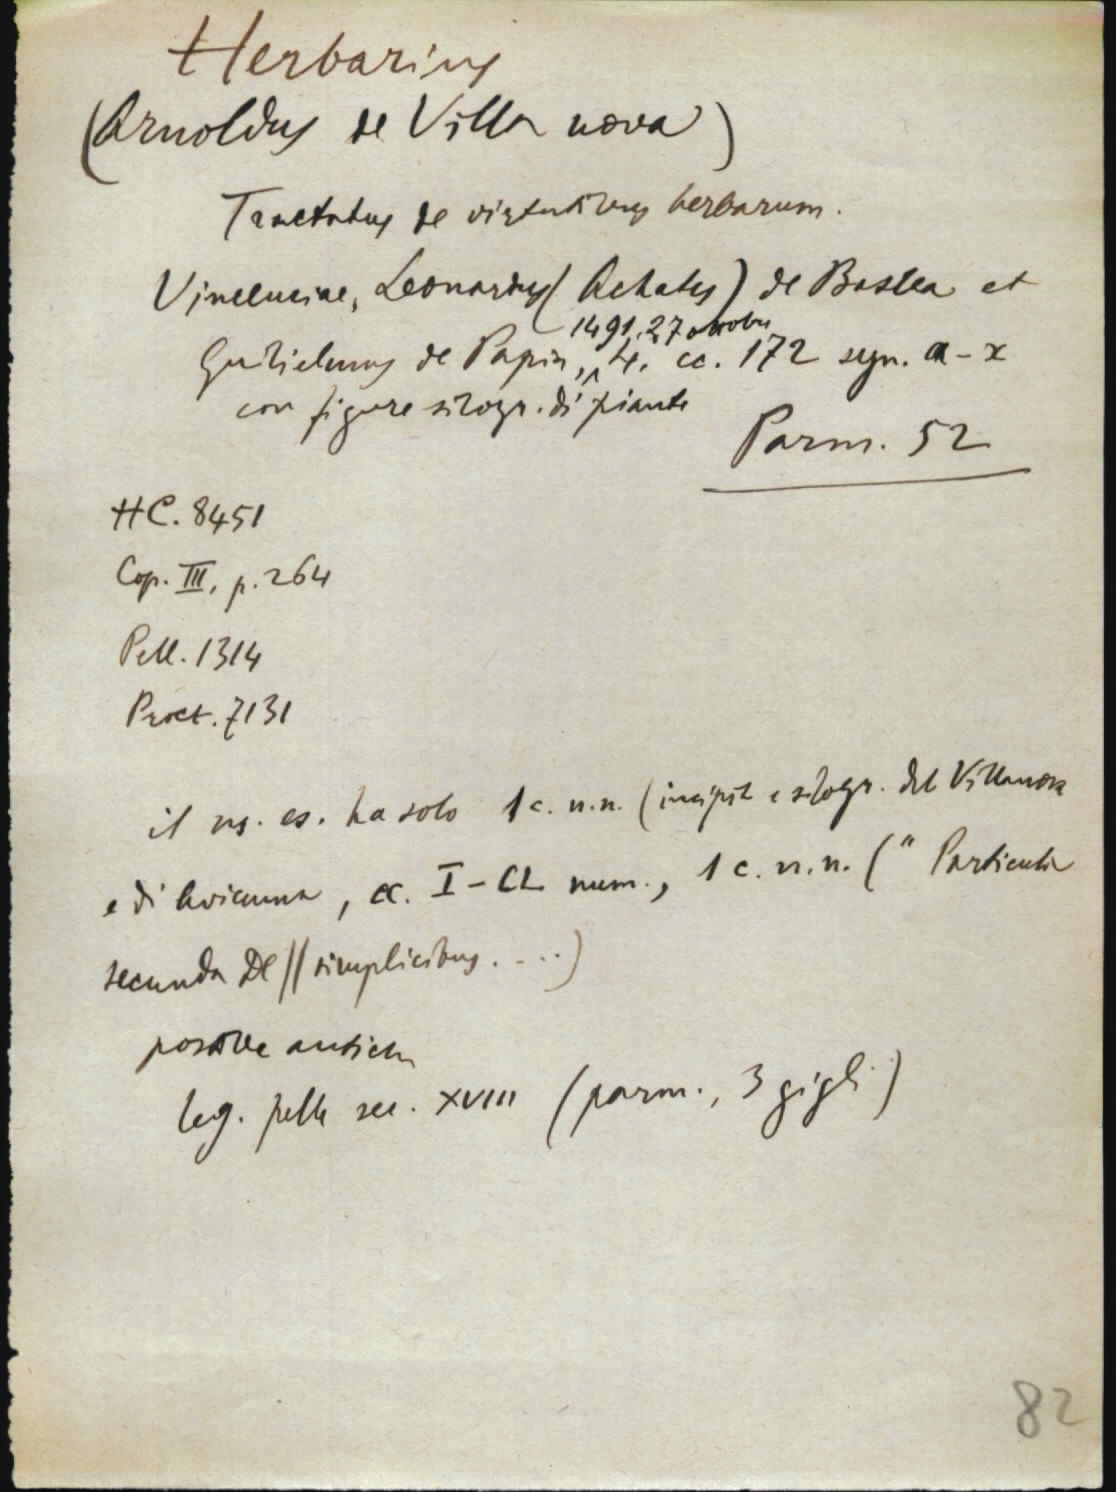 Herbarius
(Arnoldus de Villa nova)
Tractatus de virtutibus herbarum.
Vincenciae, Leonardus (Achates) de Basilea et
1491, 27 ottobre
Guilielmus de Papia, 4. cc. 172 segn. a-x
con figure silogr. di piante
Parm. 52
HC. 8451
Cop. III, p. 264
Pell. 1314
Proct. 7131
il ns. es. ha solo 1 c. n.n. (incipit e silogr. del Villanova
e di Avicenna, cc. I-CL num., 1 c. n.n. (" Particula
secunda De || simplicibus. ....)
postille antiche
leg. pelle sec. XVIII (parm., 3 gigli)
82